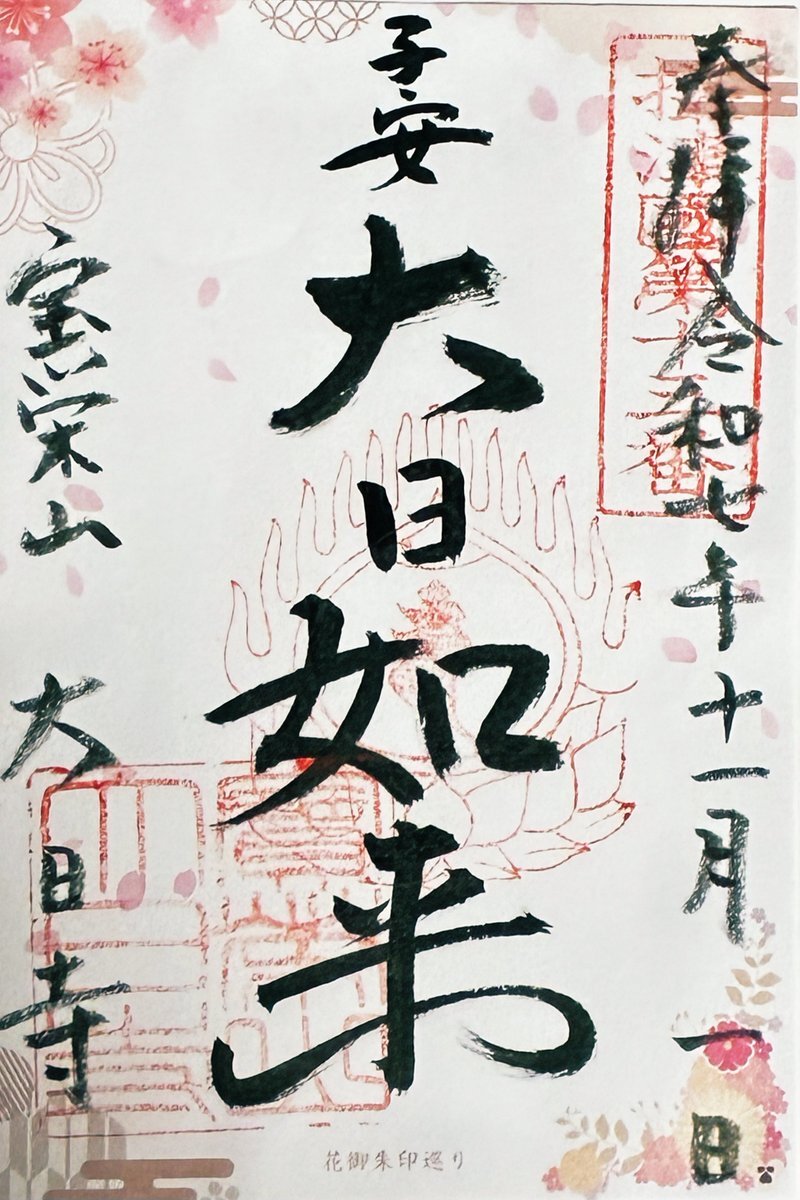 奉拝 令和七年十一月一日
子安
大日如来
宝栄山
大日寺
花御朱印巡り